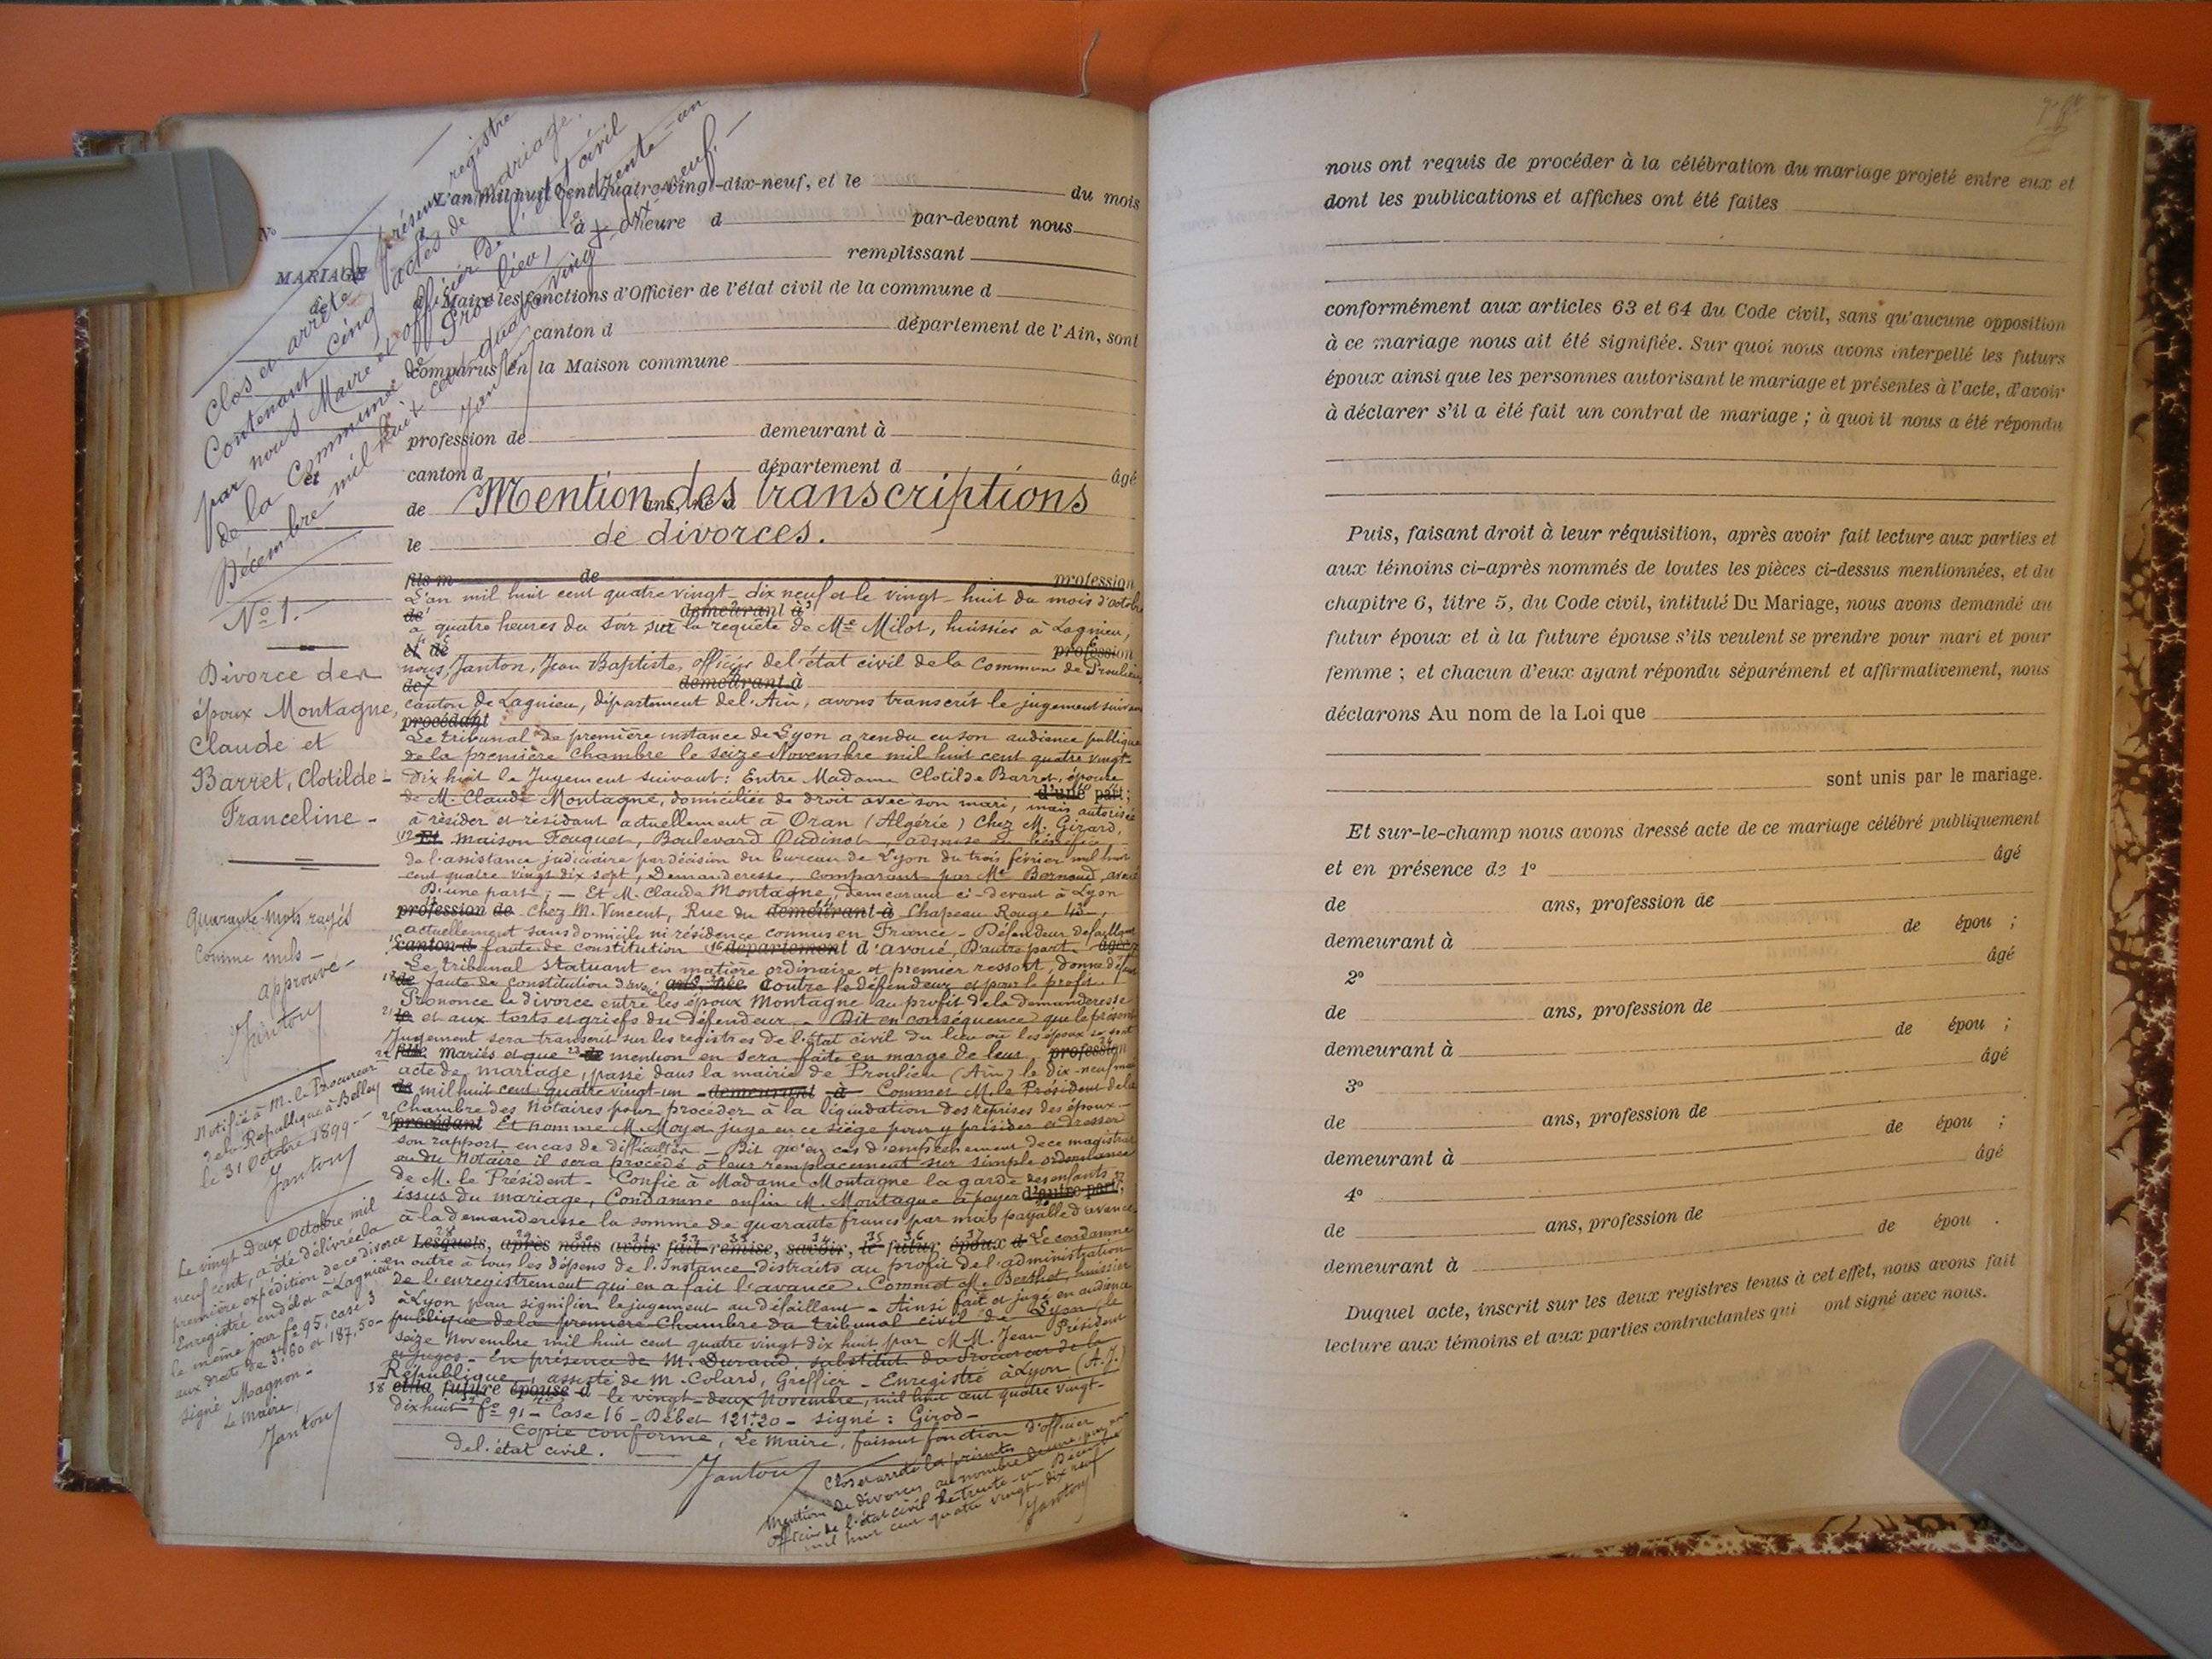 Clos et arrêté le présent registre
Contenant cinq actes de mariage.
par nous Maire et officier de l'état civil
de la Commune de Proulieu, le trente-un
Décembre mil huit cent quatre vingt dix neuf.
Janton
L'an mil huit cent quatre-vingt-dix-neuf, et le du mois
à heure d par-devant nous
MARIAGE
remplissant
de Maire les fonctions d'Officier de l'état civil de la commune d
canton d département de l'Ain, sont
comparus en la Maison commune
profession de demeurant à
et canton d département d âgé
de ans, né à
Mention des transcriptions
le
de divorces.
fils m de profession
No 1.
Divorce des
époux Montagne,
Claude et
Barret, Clotilde-
Franceline -
Quarante mots rayés
Comme nuls -
approuvé -
Janton
Notifié à M. le Procureur
de la République à Belley
le 31 Octobre 1899 -
Janton
Le vingt deux Octobre mil
neuf cent, a été délivrée la
première expédition de ce divorce
Enregistré en débet à Lagnieu
le même jour fo 95, case 3
aux droits de 3f.80 et 187,50 -
signé Magnon -
Le Maire,
Janton
L'an mil huit cent quatre vingt-dix neuf et le vingt-huit du mois d'octobre
de demeurant à
à quatre heures du soir sur la requête de Me Milot, huissier à Lagnieu,
et de profession
nous, Janton, Jean Baptiste, officier de l'état civil de la Commune de Proulieu,
de demeurant à
canton de Lagnieu, département de l'Ain, avons transcrit le jugement suivant
procédant
Le tribunal de première instance de Lyon a rendu en son audience publique
de la première chambre le seize Novembre mil huit cent quatre vingt-
dix huit le Jugement suivant : Entre Madame Clotilde Barret, épouse
de M. Claude Montagne, domiciliée de droit avec son mari, mais autorisée d'une part;
à résider et résidant actuellement à Oran (Algérie) Chez M. Gizard,
Et maison Fouquet, Boulevard Oudinot, admise au bénéfice
de l'assistance judiciaire par décision du bureau de Lyon du trois février mil huit
cent quatre vingt dix sept, Demanderesse, comparant par Me Bornaud, avoué
D'une part ; - Et M. Claude Montagne, demeurant ci-devant à Lyon
profession de chez M. Vincent, Rue du demeurant à Chapeau Rouge 43 -,
actuellement sans domicile ni résidence connus en France - Défendeur défaillant
canton d faute de constitution département d'avoué, D'autre part. âgée
Le tribunal statuant en matière ordinaire et premier ressort, donne défaut
de faute de constitution d'avoué ans, née contre le défendeur et pour le profit,
Prononce le divorce entre les époux Montagne au profit de la demanderesse
le et aux torts et griefs du défendeur - Dit en conséquence que le présent
Jugement sera transcrit sur les registres de l'état civil du lieu où les époux se sont
fille mariés et que de mention en sera faite en marge de leur profession
acte de mariage, passé dans la mairie de Proulieu (Ain) le dix-neuf mai
de mil huit cent quatre vingt-un - demeurant à - Commet M. le Président de la
Chambre des Notaires pour procéder à la liquidation des reprises des époux -
procédant Et nomme M. Moyer juge en ce siège pour y présider et dresser
son rapport en cas de difficultés - Dit qu'en cas d'empêchement de ce magistrat
ou du Notaire il sera procédé à leur remplacement sur simple ordonnance
de M. le Président - Confie à Madame Montagne la garde des enfants
issus du mariage, Condamne enfin M. Montagne à payer d'autre part;
à la demanderesse la somme de quarante francs par mois payable d'avance.
Lesquels, après nous avoir fait remise, savoir, le futur époux d Le condamne
en outre à tous les dépens de l'Instance distraits au profit de l'administration
de l'enregistrement qui en a fait l'avance. Commet M. Berthet, huissier
à Lyon pour signifier le jugement au défaillant - Ainsi fait et jugé en audience
publique de la première Chambre du tribunal civil de Lyon, le
seize Novembre mil huit cent quatre vingt dix huit par MM. Jean Président
et juges - En présence de M. Durand, substitut du Procureur de la
République, assisté de M. Colard, Greffier - Enregistré à Lyon (A.J.)
et la future épouse d le vingt-deux Novembre, mil huit cent quatre vingt-
dix huit fo 91 - Case 16 - Débet 121f20 - signé : Girod -
Copie conforme, Le Maire, faisant fonction d'officier
de l'état civil.
Janton
Clos et arrêté les présentes
Mention de divorces au nombre de une, par nous
officier de l'état civil le trente-un Décembre
mil huit cent quatre vingt-dix neuf
Janton
nous ont requis de procéder à la célébration du mariage projeté entre eux et
dont les publications et affiches ont été faites
conformément aux articles 63 et 64 du Code civil, sans qu'aucune opposition
à ce mariage nous ait été signifiée. Sur quoi nous avons interpellé les futurs
époux ainsi que les personnes autorisant le mariage et présentes à l'acte, d'avoir
à déclarer s'il a été fait un contrat de mariage ; à quoi il nous a été répondu
Puis, faisant droit à leur réquisition, après avoir fait lecture aux parties et
aux témoins ci-après nommés de toutes les pièces ci-dessus mentionnées, et du
chapitre 6, titre 5, du Code civil, intitulé Du Mariage, nous avons demandé au
futur époux et à la future épouse s'ils veulent se prendre pour mari et pour
femme ; et chacun d'eux ayant répondu séparément et affirmativement, nous
déclarons Au nom de la Loi que
sont unis par le mariage.
Et sur-le-champ nous avons dressé acte de ce mariage célébré publiquement
et en présence de 1° âgé
de ans, profession de
demeurant à de épou ;
2° âgé
de ans, profession de
demeurant à de épou ;
3° âgé
de ans, profession de
demeurant à de épou ;
4° âgé
de ans, profession de
demeurant à de épou .
Duquel acte, inscrit sur les deux registres tenus à cet effet, nous avons fait
lecture aux témoins et aux parties contractantes qui ont signé avec nous.